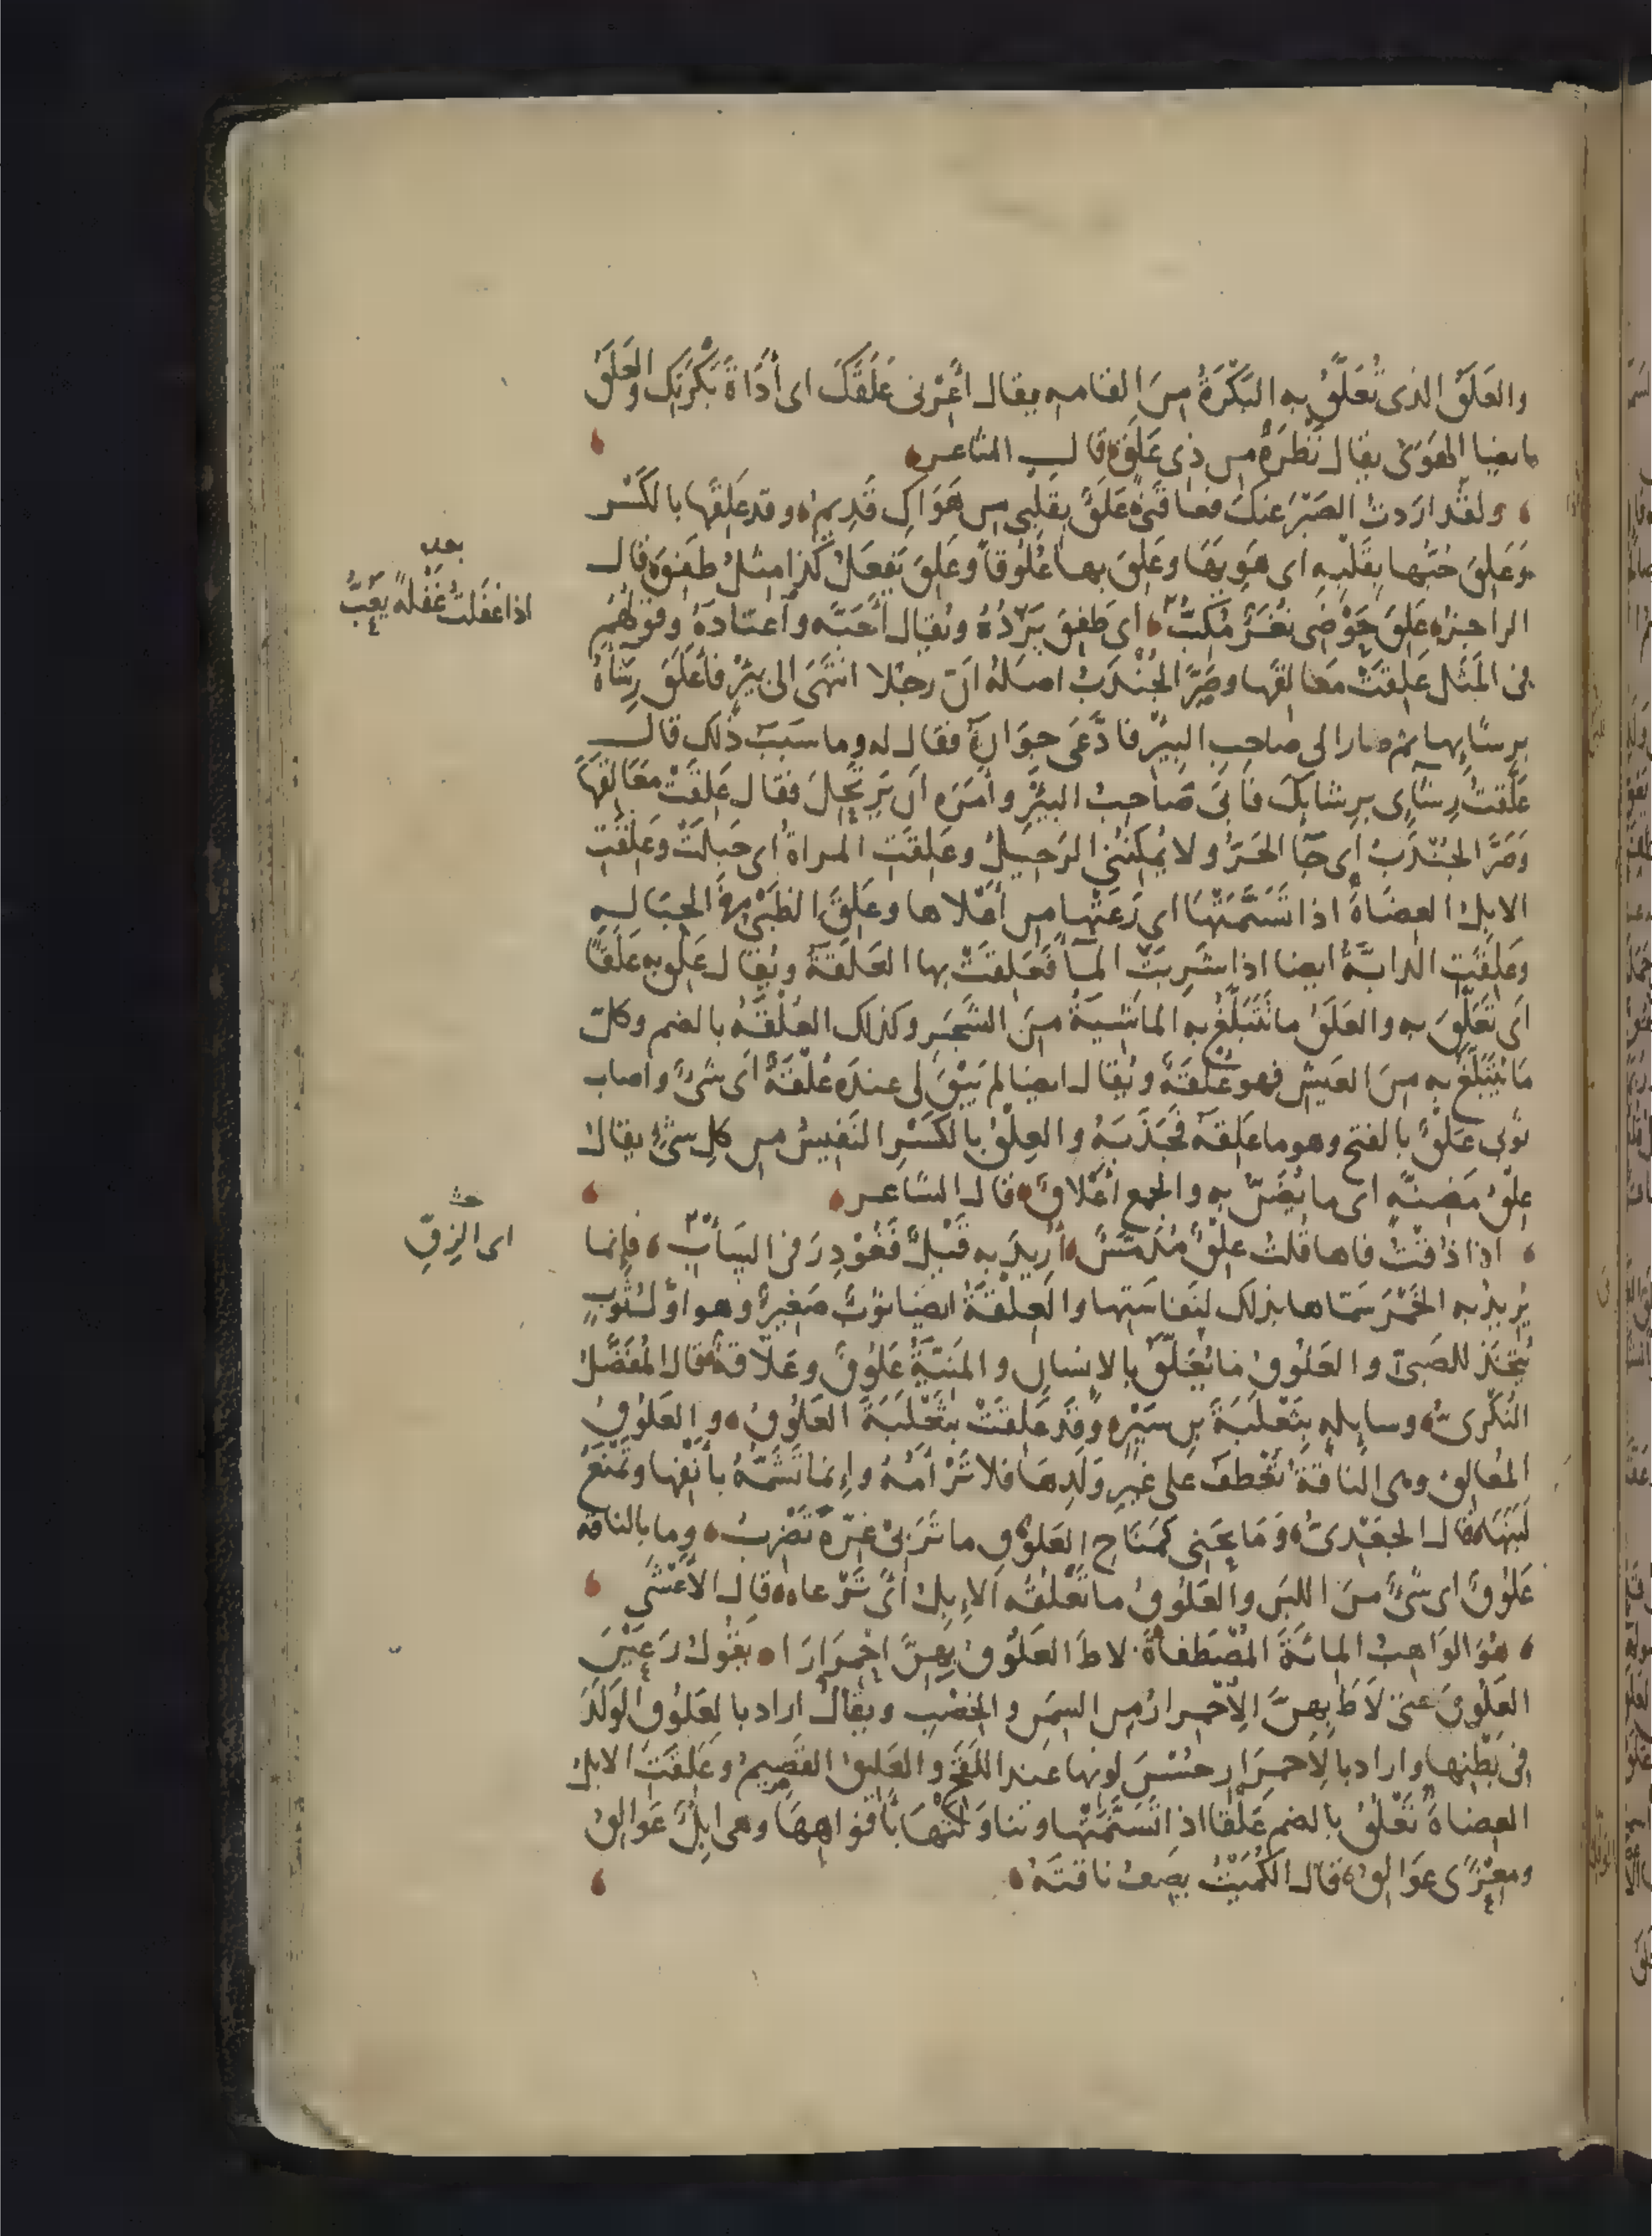 والعَلَقُ الذى تُعَلَّقُ به البَكْرَةُ مِنَ القامه يقال أَعِرْنى عَلَقَكَ اى أَدَاةَ بَكْرَتِكَ والعَلَقُ
ايضا الهَوَى يقال نَظْرَةٌ من ذِى عَلَقٍ قال الشاعر
ولقد اردت الصَبْرَ عنكِ فعاقَنِى عَلَقٌ بِقَلْبِى مِن هَوَاكِ قَدِيمُ وقد عَلِقَها بالكَسْر
وَعَلِقَ حُبُّها بِقَلْبِهِ اى هَوِيَهَا وعَلِقَ بها عُلُوقًا وعَلِقَ يَفعَلُ كذا مثل طَفِقَ قال
الراجز عَلِقَ حَوْضِى نُغَرٌ مُكِبُّ اى طَفِقَ يَرِدُهُ ويُقال أَحَبَّه وٱعتَادَهُ وقولهُم
فى المَثَل عَلِقَتْ مَعَالِقَها وصَرَّ الجُنْدَبُ اصلهُ انّ رجلا انتَهَى الى بِئْرٍ فأَعْلَقَ رِشَاءَهُ
بِرشائها ثم صار الى صاحِبِ البِئْرِ فادَّعَى جِوَارَهُ فقال له وما سَبَبُ ذٰلك قال
عَلَّقْتُ رِشَآءِى بِرِشَائِكَ فأَبَى صَاحِبُ البِئْرِ وأَمَرَه أن يَرْتَحِلَ فقال عَلِقَتْ مَعَالِقَهَا
وَصَرَّ الجُنْدَبُ اى جَآ الحَرُّ ولا يُمْكِنُنِى الرَحِيلُ وعَلِقَتِ المراةُ اى حَبِلَتْ وعَلِقَتِ
الابلُ العِضَاهَ اذا تَسَنَّمَتْهَا اى رَعَتْها مِن أَعْلاها وعَلِقَ الظَبْىُ فى الحِبَالَهِ
وعَلِقَتِ الدابَّةُ ايضا اذا شَرِبَتِ المآَ فَعَلِقَتْ بها العَلَقَةُ ويُقال عَلِقَ به عَلَقًا
اى تَعَلَّقَ به والعَلَقُ ما تَتَبَلَّغُ به الماشيةُ مِنَ الشَجَرِ وكذلك العُلْقَةُ بالضم وكلّ
مَا يُتَبَلَّغُ به مِنَ العَيْشِ فهو عُلْقَةٌ ويُقال ايضا لم يَبْقَ لى عندَه عُلْقَةٌ اى شىءٌ واصاب
ثوبى عَلْقٌ بالفتح وهو ما عَلِقَهُ فجَذَبَهُ والعِلْقُ بالكَسْرِ النَفِيسُ من كلِ شىءٍ يقال
عِلْقُ مَضِنَّةٍ اى ما يُضَنُّ به والجمع أَعْلاقٌ قال الشاعر
اذا ذُقْتُ فاها قُلْتُ عِلْقٌ مُدَمَّسٌ أُرِيدَ به قَيْلٌ فَغُودِرَ فى السَأْبِ فإنما
يُرِيدُ به الخَمْرَ سَمَّاها بذلك لِنَفاسَتِها والعِلْقَةُ ايضا ثوبٌ صَغِيرٌ وهو اوّلُ ثَوْبٍ
يُتَّخَذُ للصَبِىّ والعَلُوقُ ما يُعَلَّقُ بالانسان والمَنِيَّةُ عَلُوقٌ وعَلَّاقَةٌ قال المُفَضَّلُ
النُكْرِىُّ وسايِلَهٍ بِثَعْلَبَةَ بنِ سَيْرٍ وقَد عَلِقَتْ بِثَعْلَبَةَ العَلُوقُ والعَلُوقُ
المُعَالِقُ وهى الناقةُ تَعْطِفُ على غَيْرِ وَلَدِهَا فلا تَرْأَمُهُ وإنما تَشَمُّهُ بأَنْفِها وتَمْنَعُ
لَبَنَهَا قال الجَعْدِىُّ وَمَا نَحَنِى كَمِنَاحِ العَلُوقِ ما تَرَ بى غِرَّةً تَضْرِبُ وما بالناقه
عَلُوقٌ اى شىءٌ مِنَ اللبَن والعَلُوقُ ما تَعْلُقُه الإبِلُ اى تَرْعاه قال الأَعْشَى
هُوَ الوَاهِبُ المائةَ المُصْطَفاةَ لاطَ العَلُوقُ بِهِنَّ احْمِرَارَا يَقُولُ رَعَيْنَ
العَلُوقَ حتى لَاطَ بِهِنَّ الاِحْمِرارُ مِن السِمَنِ والخِصْبِ ويُقالُ اراد بالعَلُوقِ الوَلَدَ
فى بَطْنِها واراد بالاِحمِرَارِ حُسْنَ لونِها عند اللَقْحِ والعَلِيقُ القَضِيمُ وعَلَقَتِ الابلُ
العِضَاهَ تَعْلُقُ بالضم عَلْقا اذا تَسَنَّمَتْها وتَناوَلَتْهَا بأَفْوَاهِهَا وهى ابِلٌ عَوَالِقُ
ومِعْزًى عَوَالِقُ قال الكُمَيْتُ يَصِفُ ناقتَهُ
بعده
اذا غَفَلَتْ غَفْلَةً يَعُبُّ
اى الزِقِّ